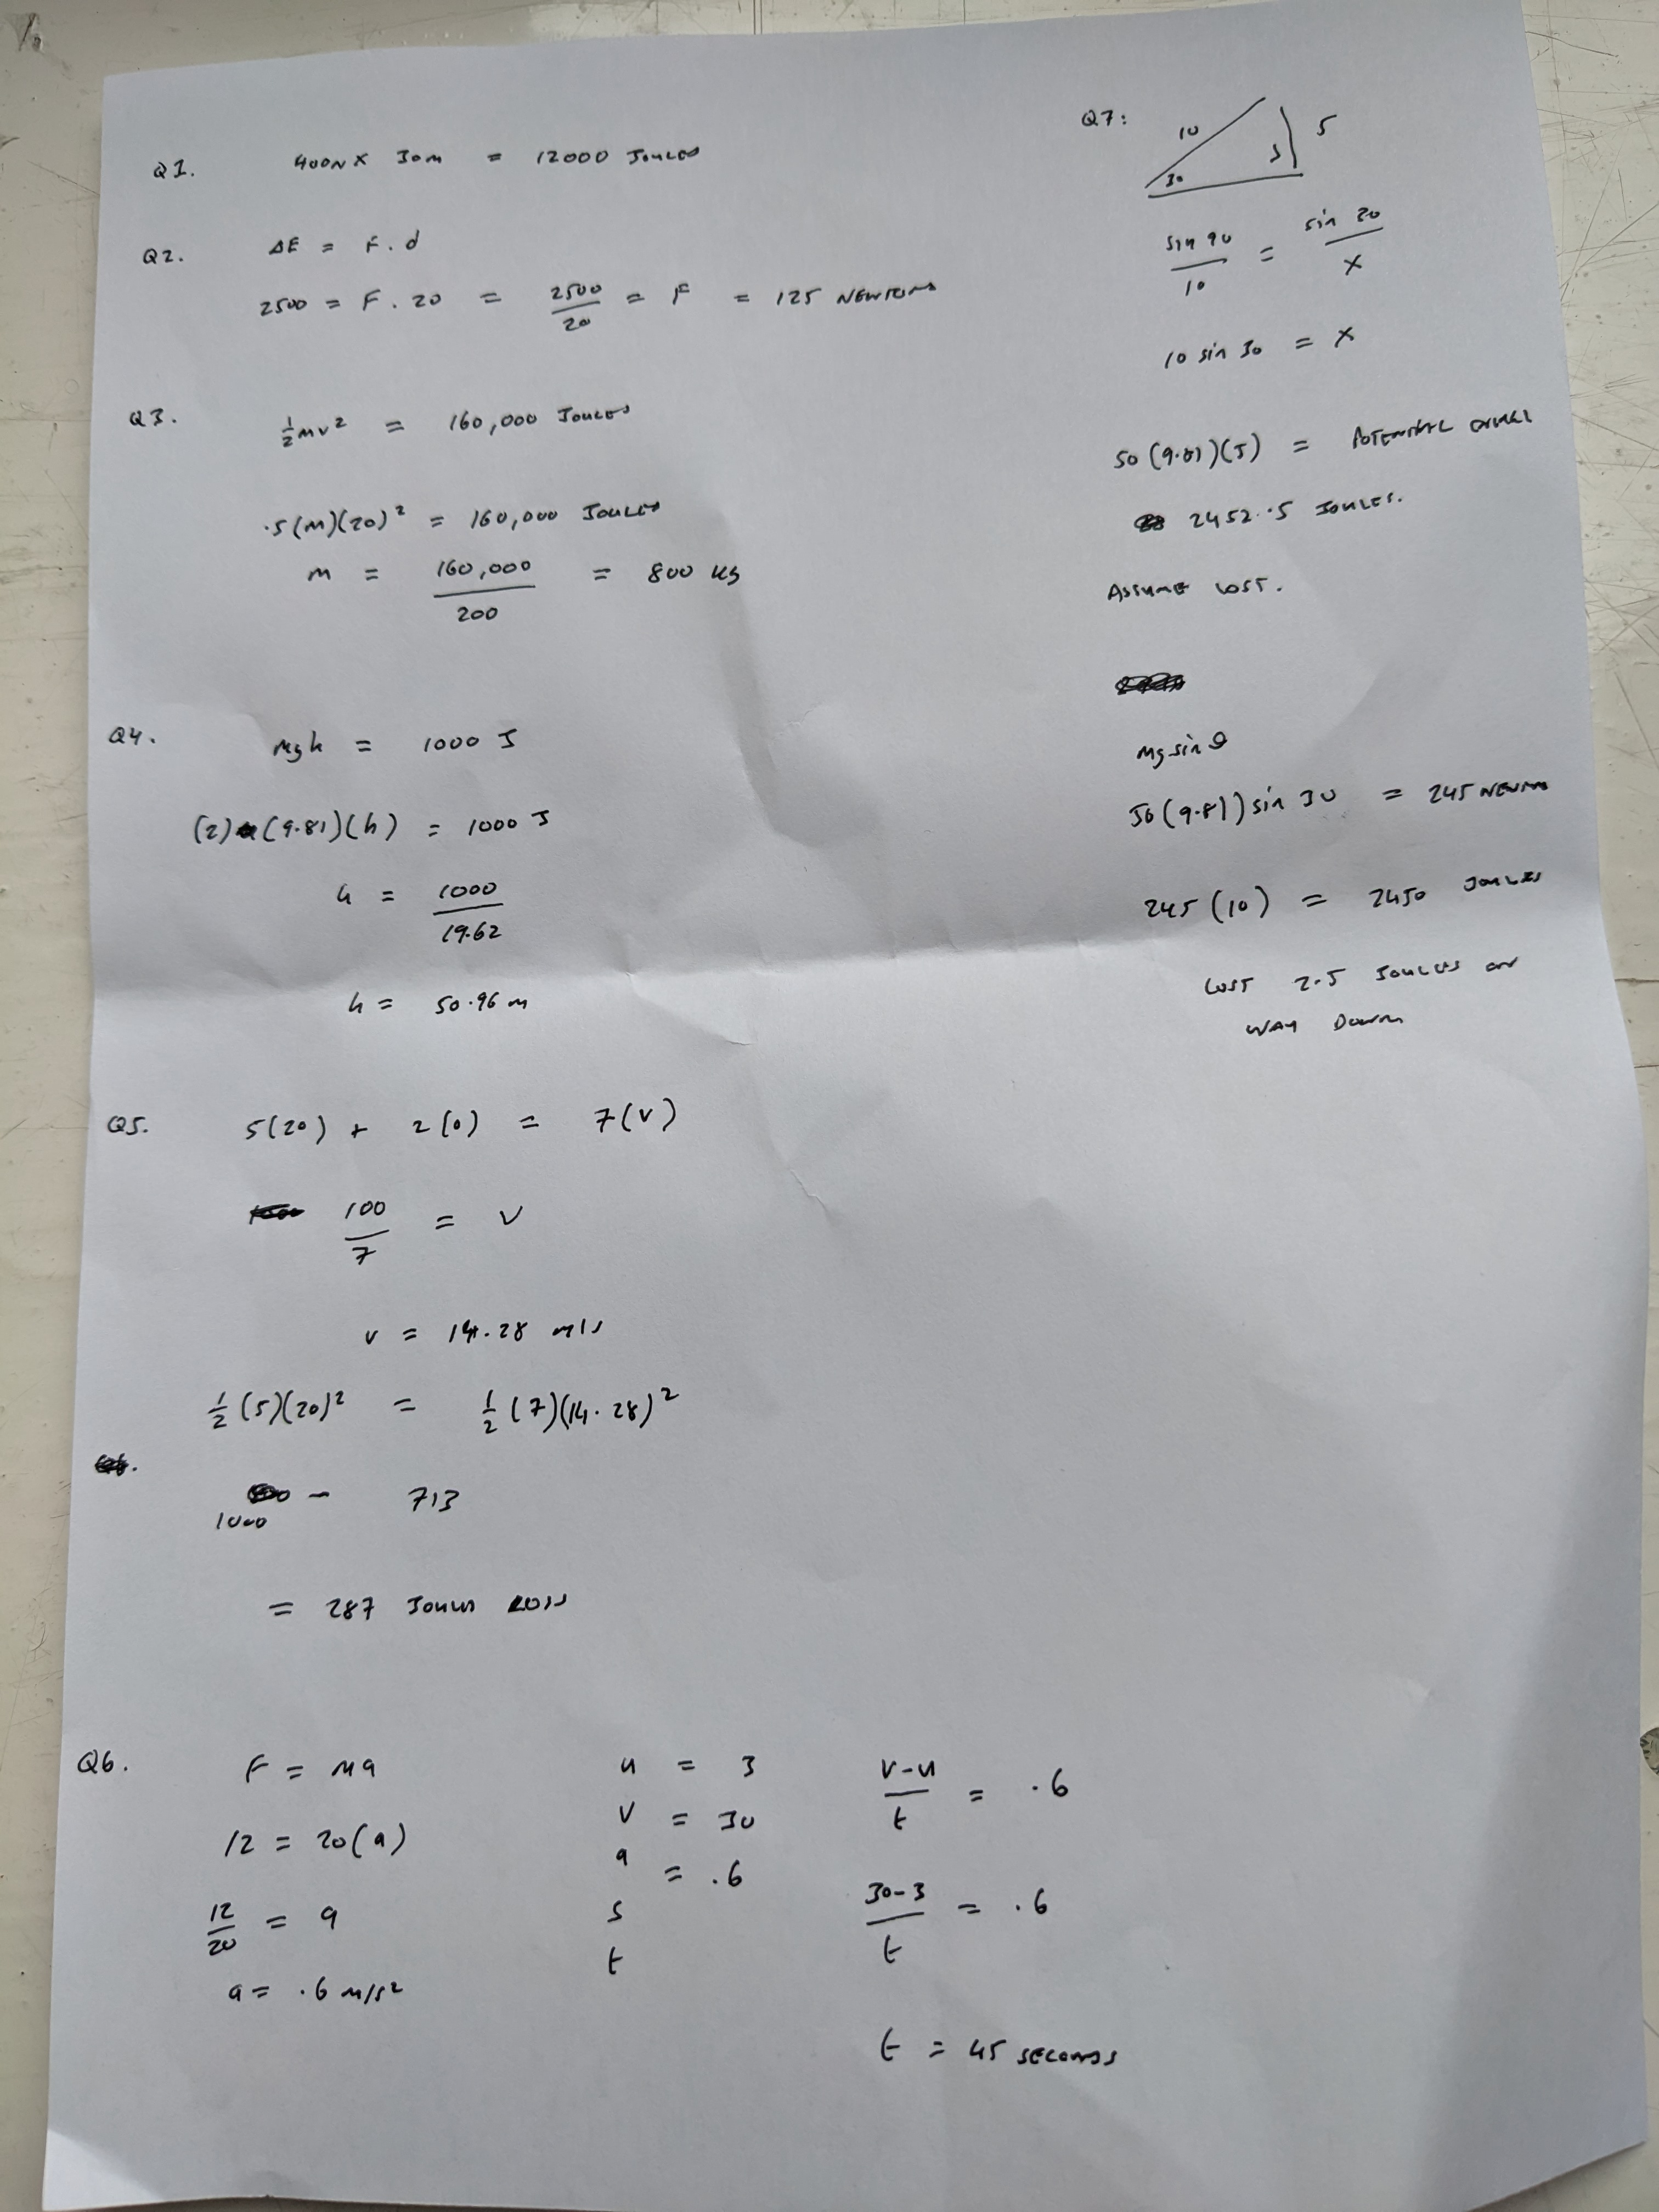 Q1. 400N X 30m = 12000 JOULES
Q2. ΔE = F.d
2500 = F. 20 = 2500/20 = F = 125 NEWTONS
Q3. ½mv² = 160,000 JOULES
.5(m)(20)² = 160,000 JOULES
m = 160,000/200 = 800 kg
Q4. mgh = 1000 J
(2)(9.81)(h) = 1000 J
h = 1000/19.62
h = 50.96 m
Q5. 5(20) + 2(0) = 7(v)
100/7 = v
v = 14.28 m/s
½(5)(20)² = ½(7)(14.28)²
1000 - 713
= 287 JOULES LOSS
Q6. F = ma
12 = 20(a)
12/20 = a
a = .6 m/s²
u = 3
v = 30
a = .6
s
t
v-u/t = .6
30-3/t = .6
t = 45 SECONDS
Q7: 10 5
30 5
sin 90/10 = sin 30/x
10 sin 30 = x
50(9.81)(5) = POTENTIAL ENERGY
2452.5 JOULES.
ASSUME LOST.
mg sin θ
50(9.81) sin 30 = 245 NEWTONS
245(10) = 2450 JOULES
LOST 2.5 JOULES ON
WAY DOWN